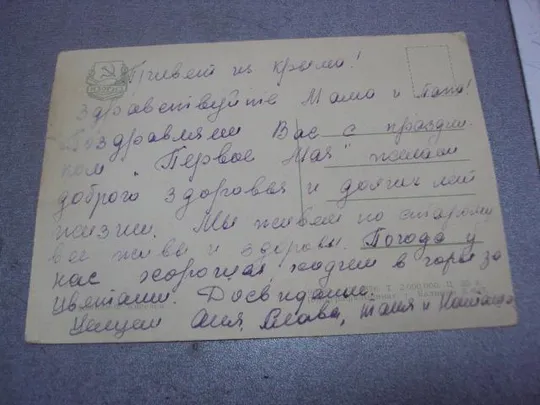 Привет из Крыма!
Здравствуйте Мама и Папа!
Поздравляем Вас с праздни
ком "Первое Мая" желаем
доброго здоровья и долгих лет
жизни. Мы живем по старому
все живы и здоровы. Погода у
нас хорошая ходим в горы за
цветами. Досвидание.
Целуем Аня, Слава, Таня и Наташа